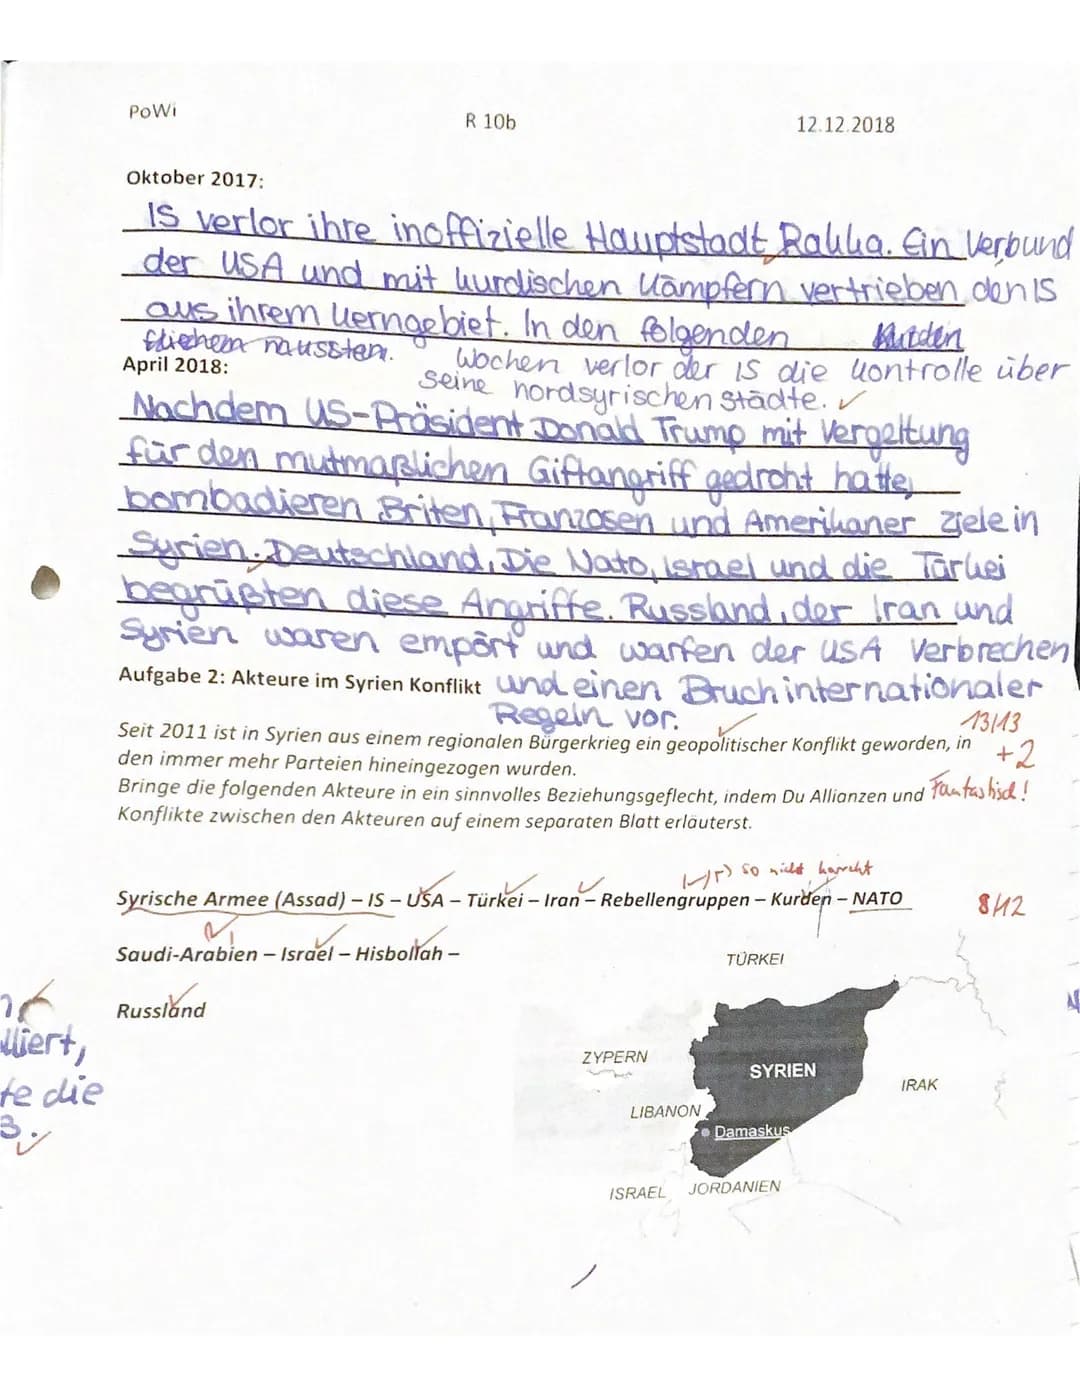 PoWi
R 10b
12.12.2018
Oktober 2017:
IS verlor ihre inoffizielle Hauptstadt Rakka. Ein Verbund
der USA und mit kurdischen Kämpfern vertrieben den IS
aus ihrem Kerngebiet. In den folgenden Kurden
fliehen mussten.
Wochen verlor der IS die Kontrolle über
April 2018:
seine nordsyrischen Städte.
Nachdem US-Präsident Donald Trump mit Vergeltung
für den mutmaßlichen Giftangriff gedroht hatte,
bombadieren Briten, Franzosen und Amerikaner Ziele in
Syrien. Deutschland, Die Nato, Israel und die Türkei
begrüßten diese Angriffe. Russland, der Iran und
Syrien waren empört und warfen der USA Verbrechen
Aufgabe 2: Akteure im Syrien Konflikt und einen Bruch internationaler
Regeln vor.
13/13
Seit 2011 ist in Syrien aus einem regionalen Bürgerkrieg ein geopolitischer Konflikt geworden, in
+2
den immer mehr Parteien hineingezogen wurden.
Bringe die folgenden Akteure in ein sinnvolles Beziehungsgeflecht, indem Du Allianzen und
Fantastisch!
Konflikte zwischen den Akteuren auf einem separaten Blatt erläuterst.
so nicht korrekt
Syrische Armee (Assad) – IS – USA – Türkei – Iran – Rebellengruppen – Kurden – NATO
8/12
Saudi-Arabien – Israel – Hisbollah –
Russland
lliert,
te die
3.
TÜRKEI
ZYPERN
SYRIEN
IRAK
LIBANON
Damaskus
ISRAEL
JORDANIEN